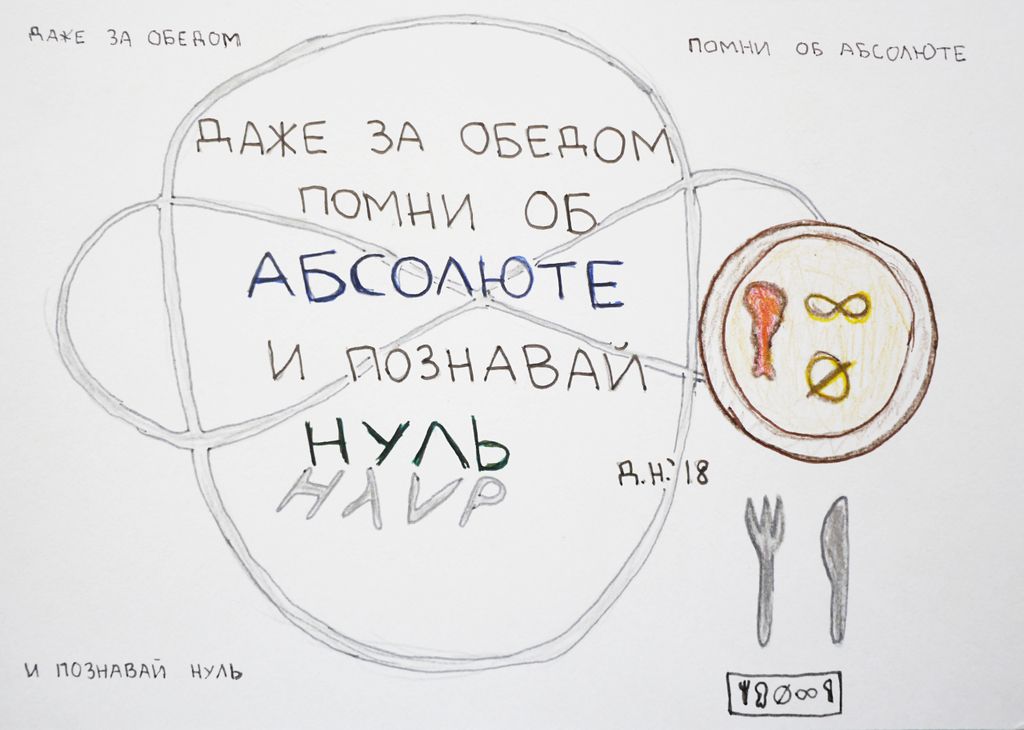 ДАЖЕ ЗА ОБЕДОМ
ПОМНИ ОБ АБСОЛЮТЕ
ДАЖЕ ЗА ОБЕДОМ
ПОМНИ ОБ
АБСОЛЮТЕ
И ПОЗНАВАЙ
НУЛЬ
Д.Н.'18
И ПОЗНАВАЙ НУЛЬ